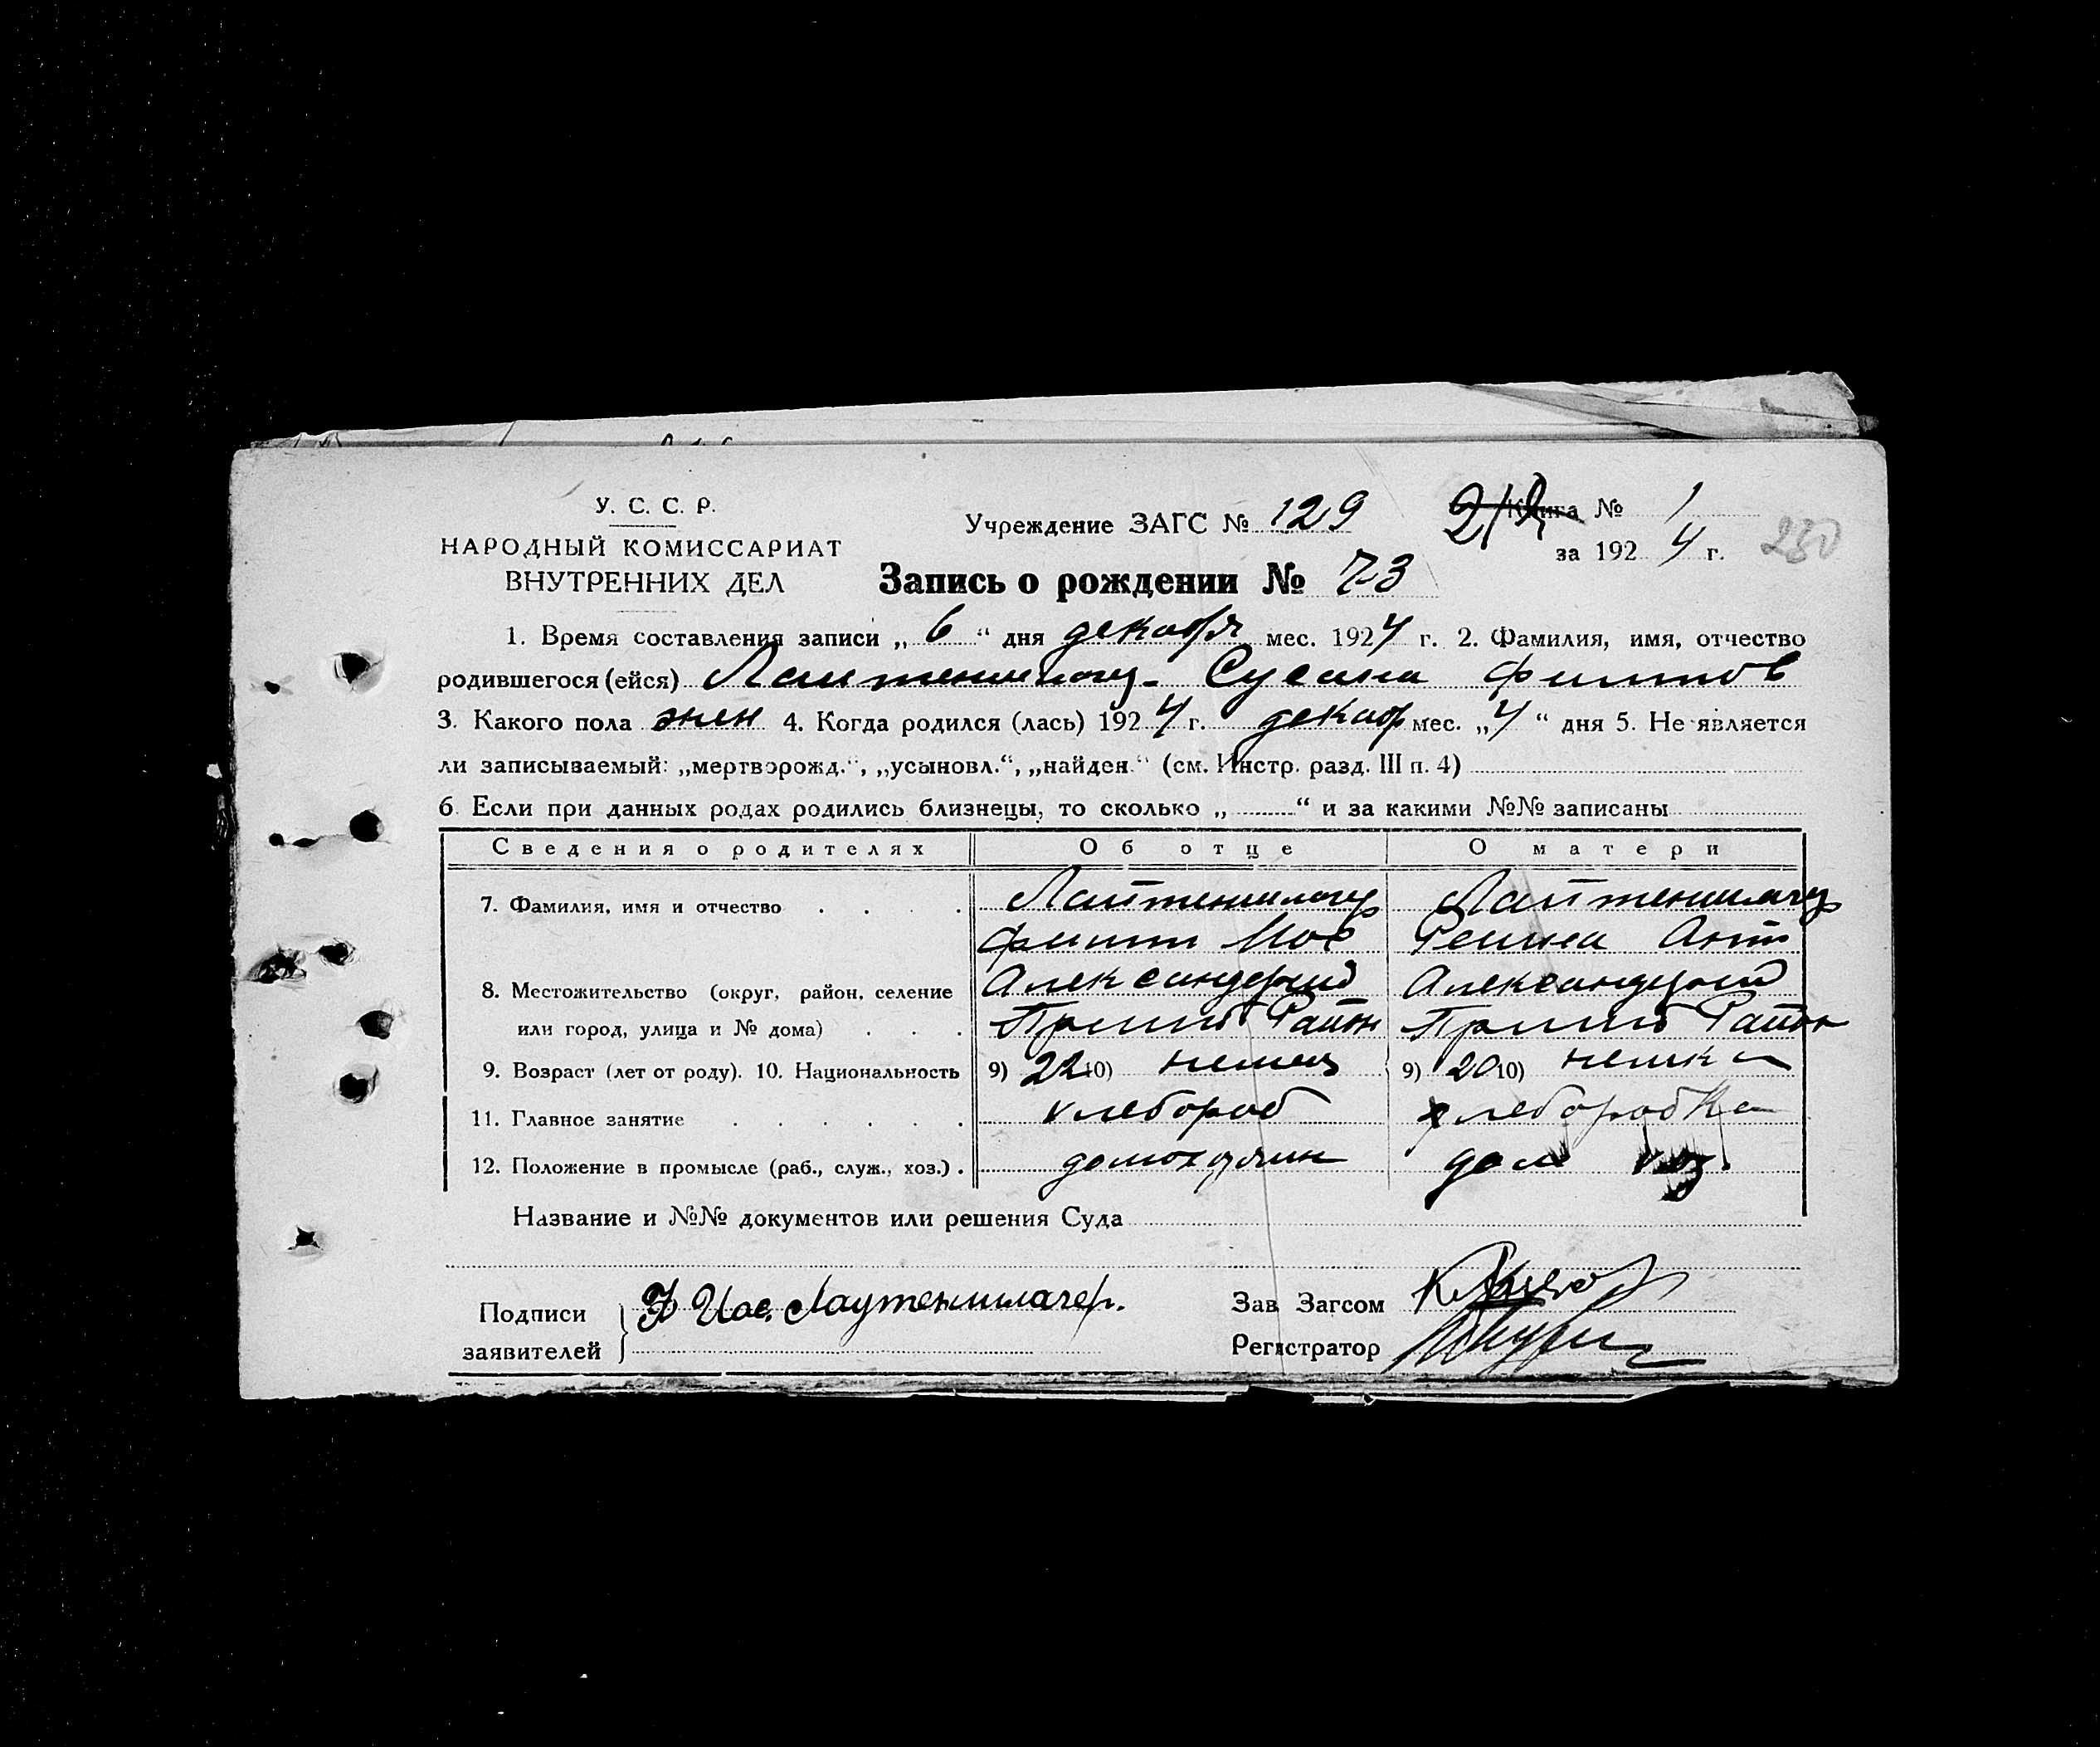 У. С. С. Р.
НАРОДНЫЙ КОМИССАРИАТ
ВНУТРЕННИХ ДЕЛ
Учреждение ЗАГС № 129
Книга № 1
за 1924 г. 230
Запись о рождении № 73
1. Время составления записи „ 6 “ дня декабря мес. 1924 г. 2. Фамилия, имя, отчество
родившегося (ейся) Сусана
3. Какого пола жен 4. Когда родился (лась) 1924 г. декабр мес. „ 4 “ дня 5. Не является
ли записываемый: „мертворожд.“, „усыновл.“, „найден.“ (см. Инстр. разд. III п. 4)
6. Если при данных родах родились близнецы, то сколько „ “ и за какими №№ записаны
Сведения о родителях Об отце О матери
7. Фамилия, имя и отчество Лайтеншлагер Лайтеншлагер
Филип Иос Регина Ант
8. Местожительство (округ, район, селение
или город, улица и № дома) Район Район
9. Возраст (лет от роду). 10. Национальность 9) 22 10) немец 9) 20 10) немка
11. Главное занятие хлебороб хлеборобка
12. Положение в промысле (раб., служ., хоз.) . домохозяин дом хоз.
Название и №№ документов или решения Суда
Подписи
заявителей Ф Иос. Лаутеншлагер.
Зав Загсом
Регистратор